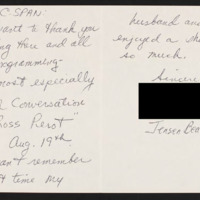 C-SPAN:
want to thank you
ing there and all
rogramming-
most especially
Conversation
Ross Perot"
Aug. 19th
an't remember
t time my
husband and
enjoyed a
so much.
Sincere
Jensen Bea